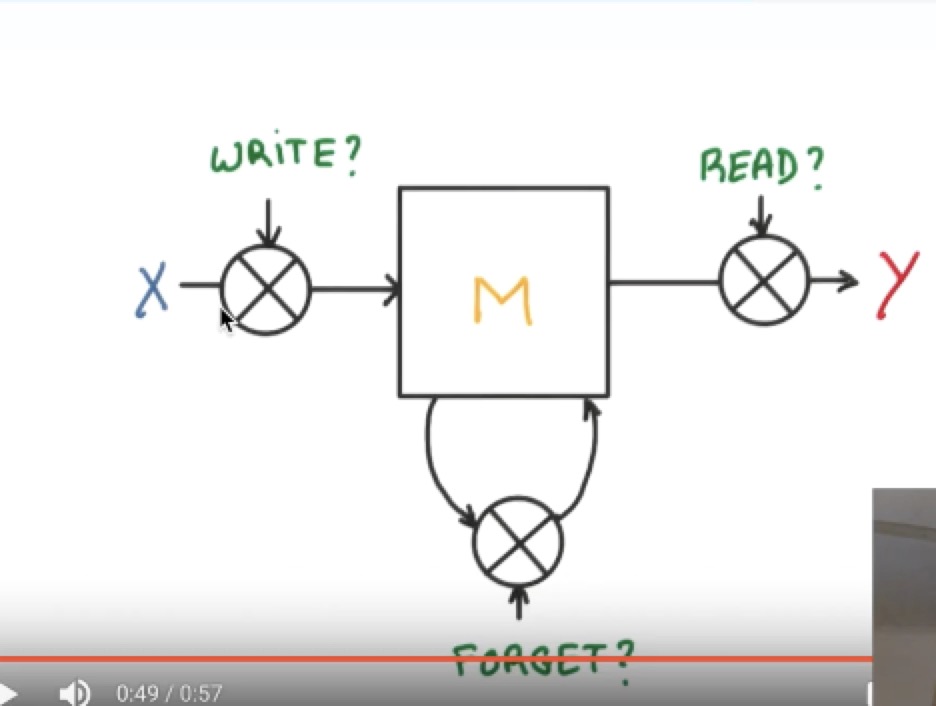 WRITE?
READ?
X
M
Y
FORGET?
0:49 / 0:57